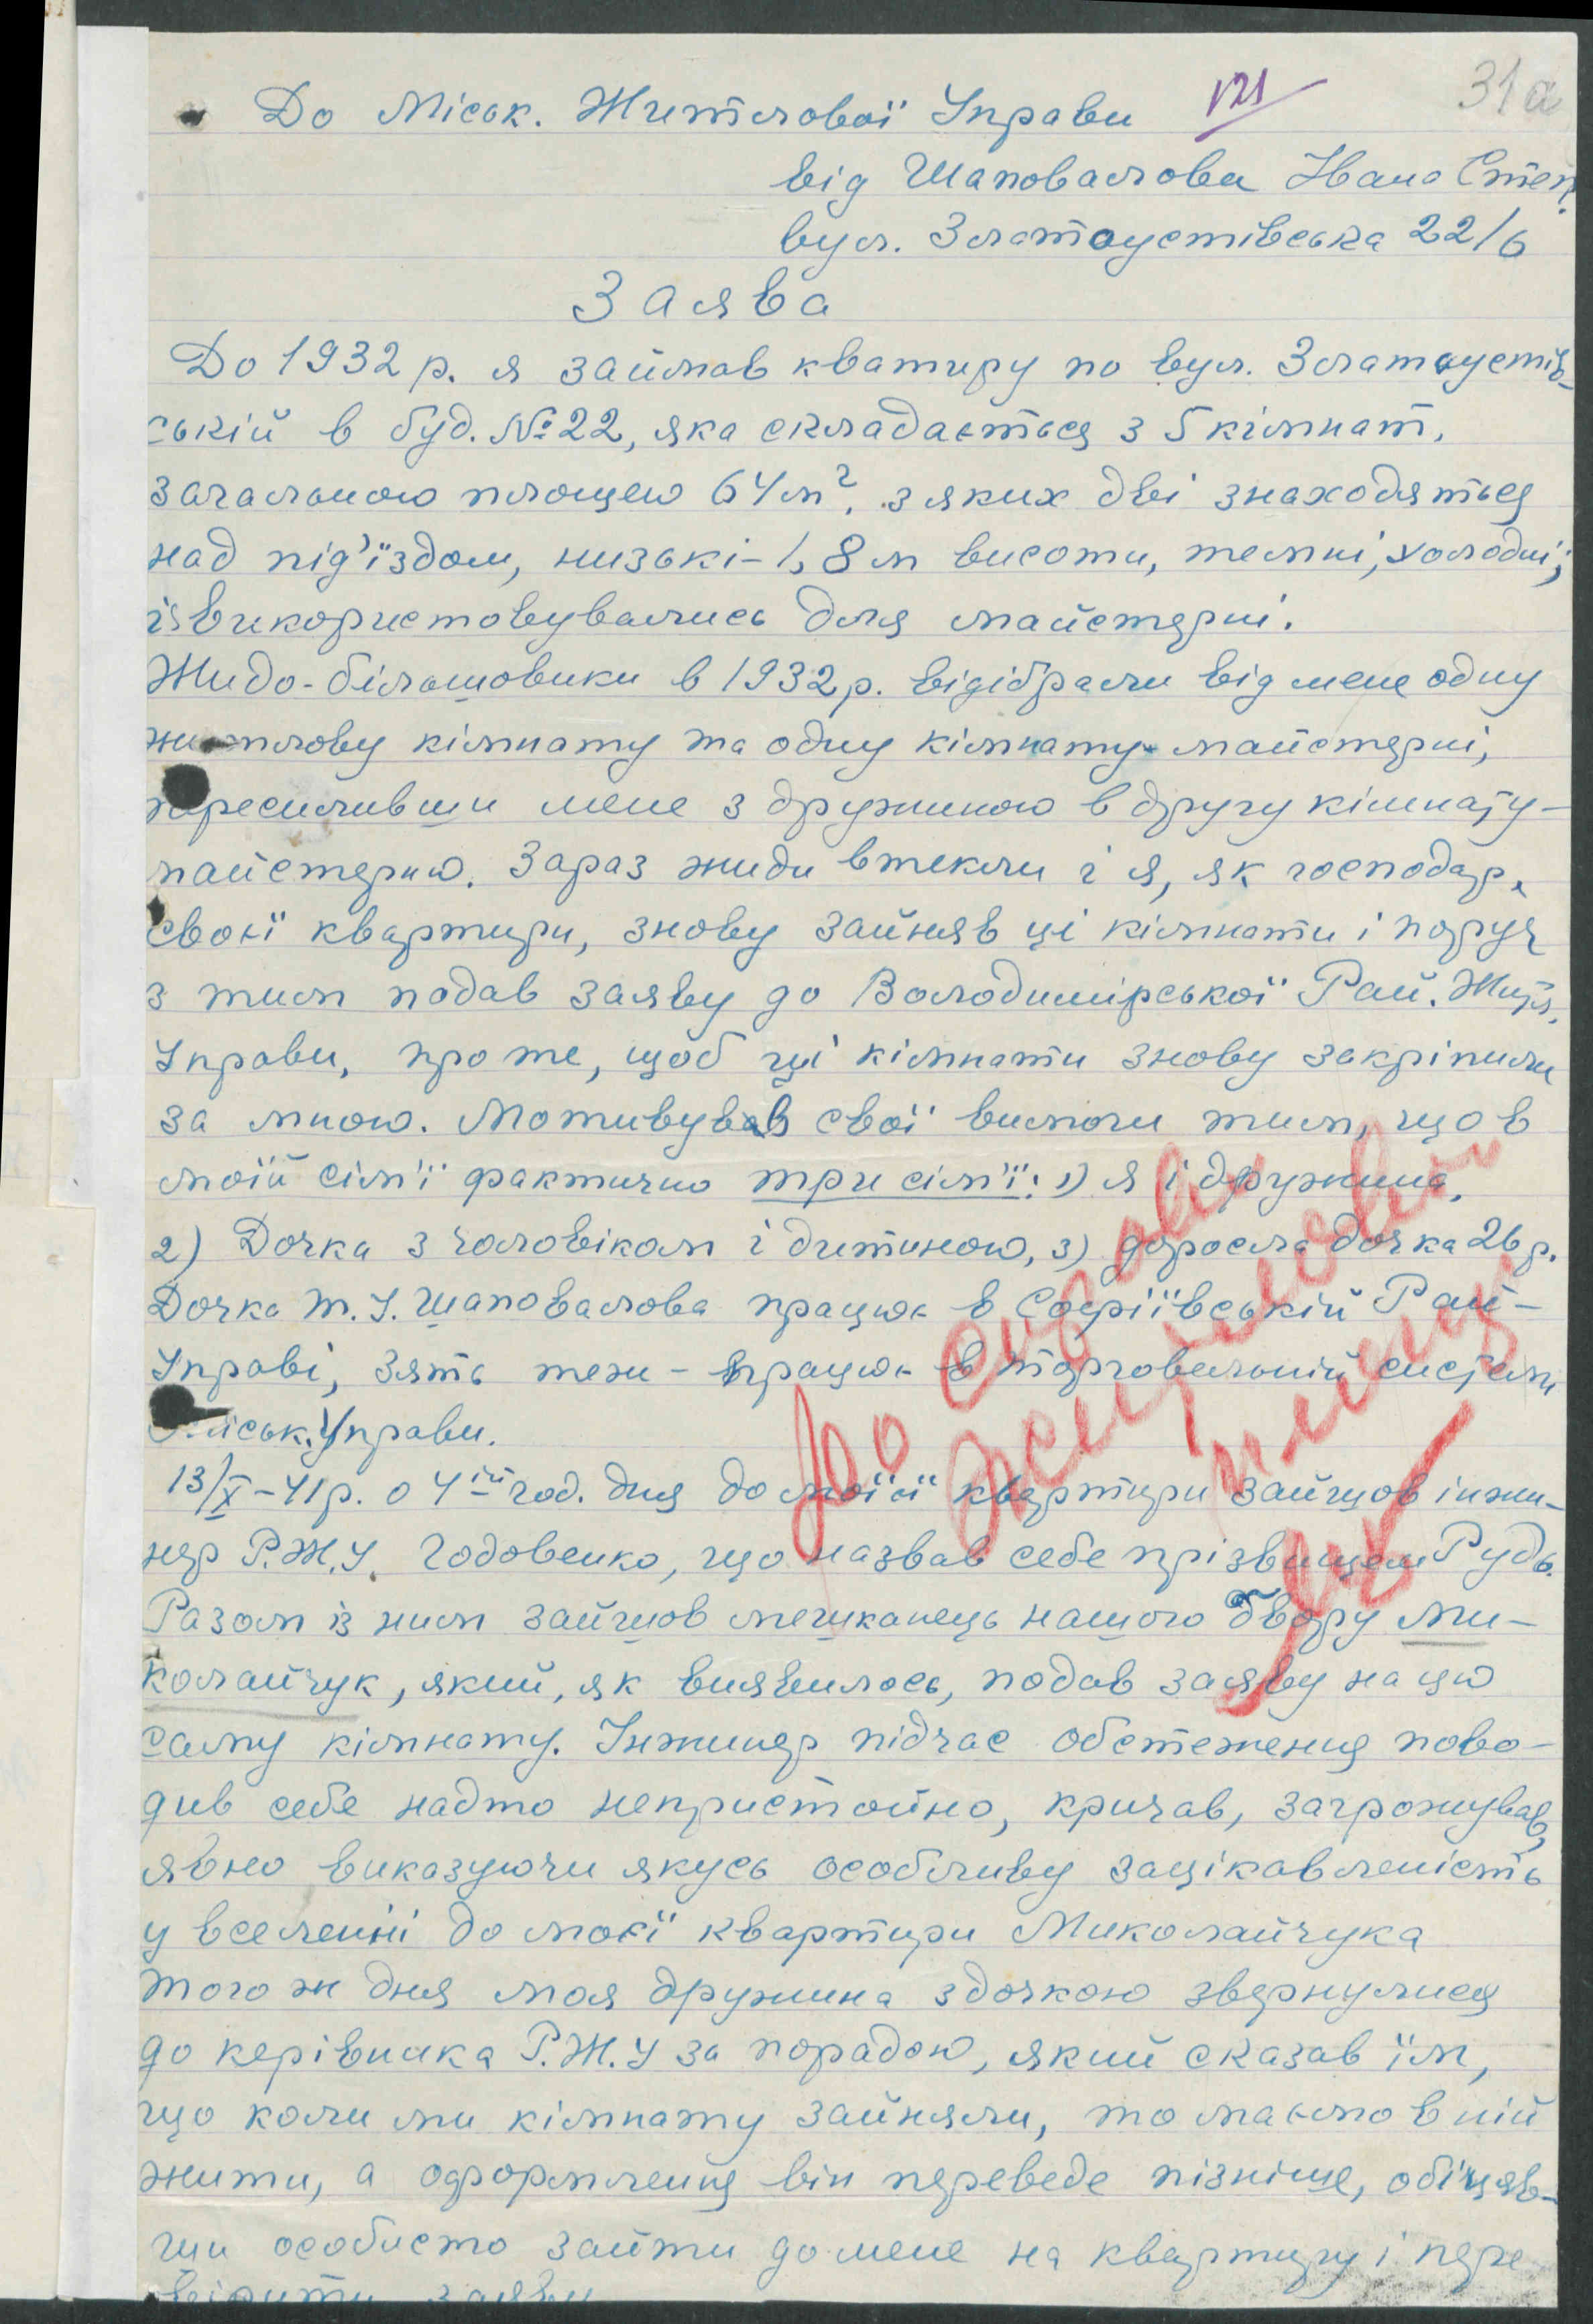 121
31а
До Міськ. Житлової Управи
від Шаповалова Івана Степ.
вул. Златоустівська 22/6
Заява
До 1932 р. я займав кватиру по вул. Златоустів-
ській в буд. № 22, яка складається з 5 кімнат,
загальною площею 64 м², з яких дві знаходяться
над під'їздом, низькі - 1,8 м висоти, темні, холодні;
і використовувались для майстерні.
Жидо-більшовики в 1932 р. відібрали від мене одну
житлову кімнату та одну кімнату майстерні,
переселивши мене з дружиною в другу кімнату-
майстерню. Зараз жиди втекли і я, як господар,
своєї квартири, знову зайняв ці кімнати і поруч
з тим подав заяву до Володимірської Рай. Житл.
Управи, про те, щоб ці кімнати знову закріпили
за мною. Мотивував свої вимоги тим, що в
моїй сім'ї фактично три сім'ї: 1) я і дружина,
2) Дочка з чоловіком і дитиною, 3) доросла дочка 26 р.
Дочка Т. І. Шаповалова працює в Софіївській Рай-
Управі, зять теж - працює в торговельній системі
Міськ. Управи.
13/X-41 р. о 4ій год. дня до моєї квартири зайшов інжи-
нер Р.Ж.У. Годовенко, що назвав себе прізвищем Рудь.
Разом із ним зайшов мешканець нашого двору Ми-
колайчук, який, як виявилось, подав заяву на цю
саму кімнату. Інжинер підчас обстеження пово-
див себе надто непристойно, кричав, загрожував,
явно виказуючи якусь особливу зацікавленість
у вселенні до моєї квартири Миколайчука
Того ж дня моя дружина з дочкою звернулися
до керівника Р.Ж.У за порадою, який сказав їм,
що коли ми кімнату зайняли, то маємо в ній
жити, а оформлення він переведе пізніше, обіцяв-
ши особисто зайти до мене на квартиру і пере
вірити заяву
До справи
житлової
площі